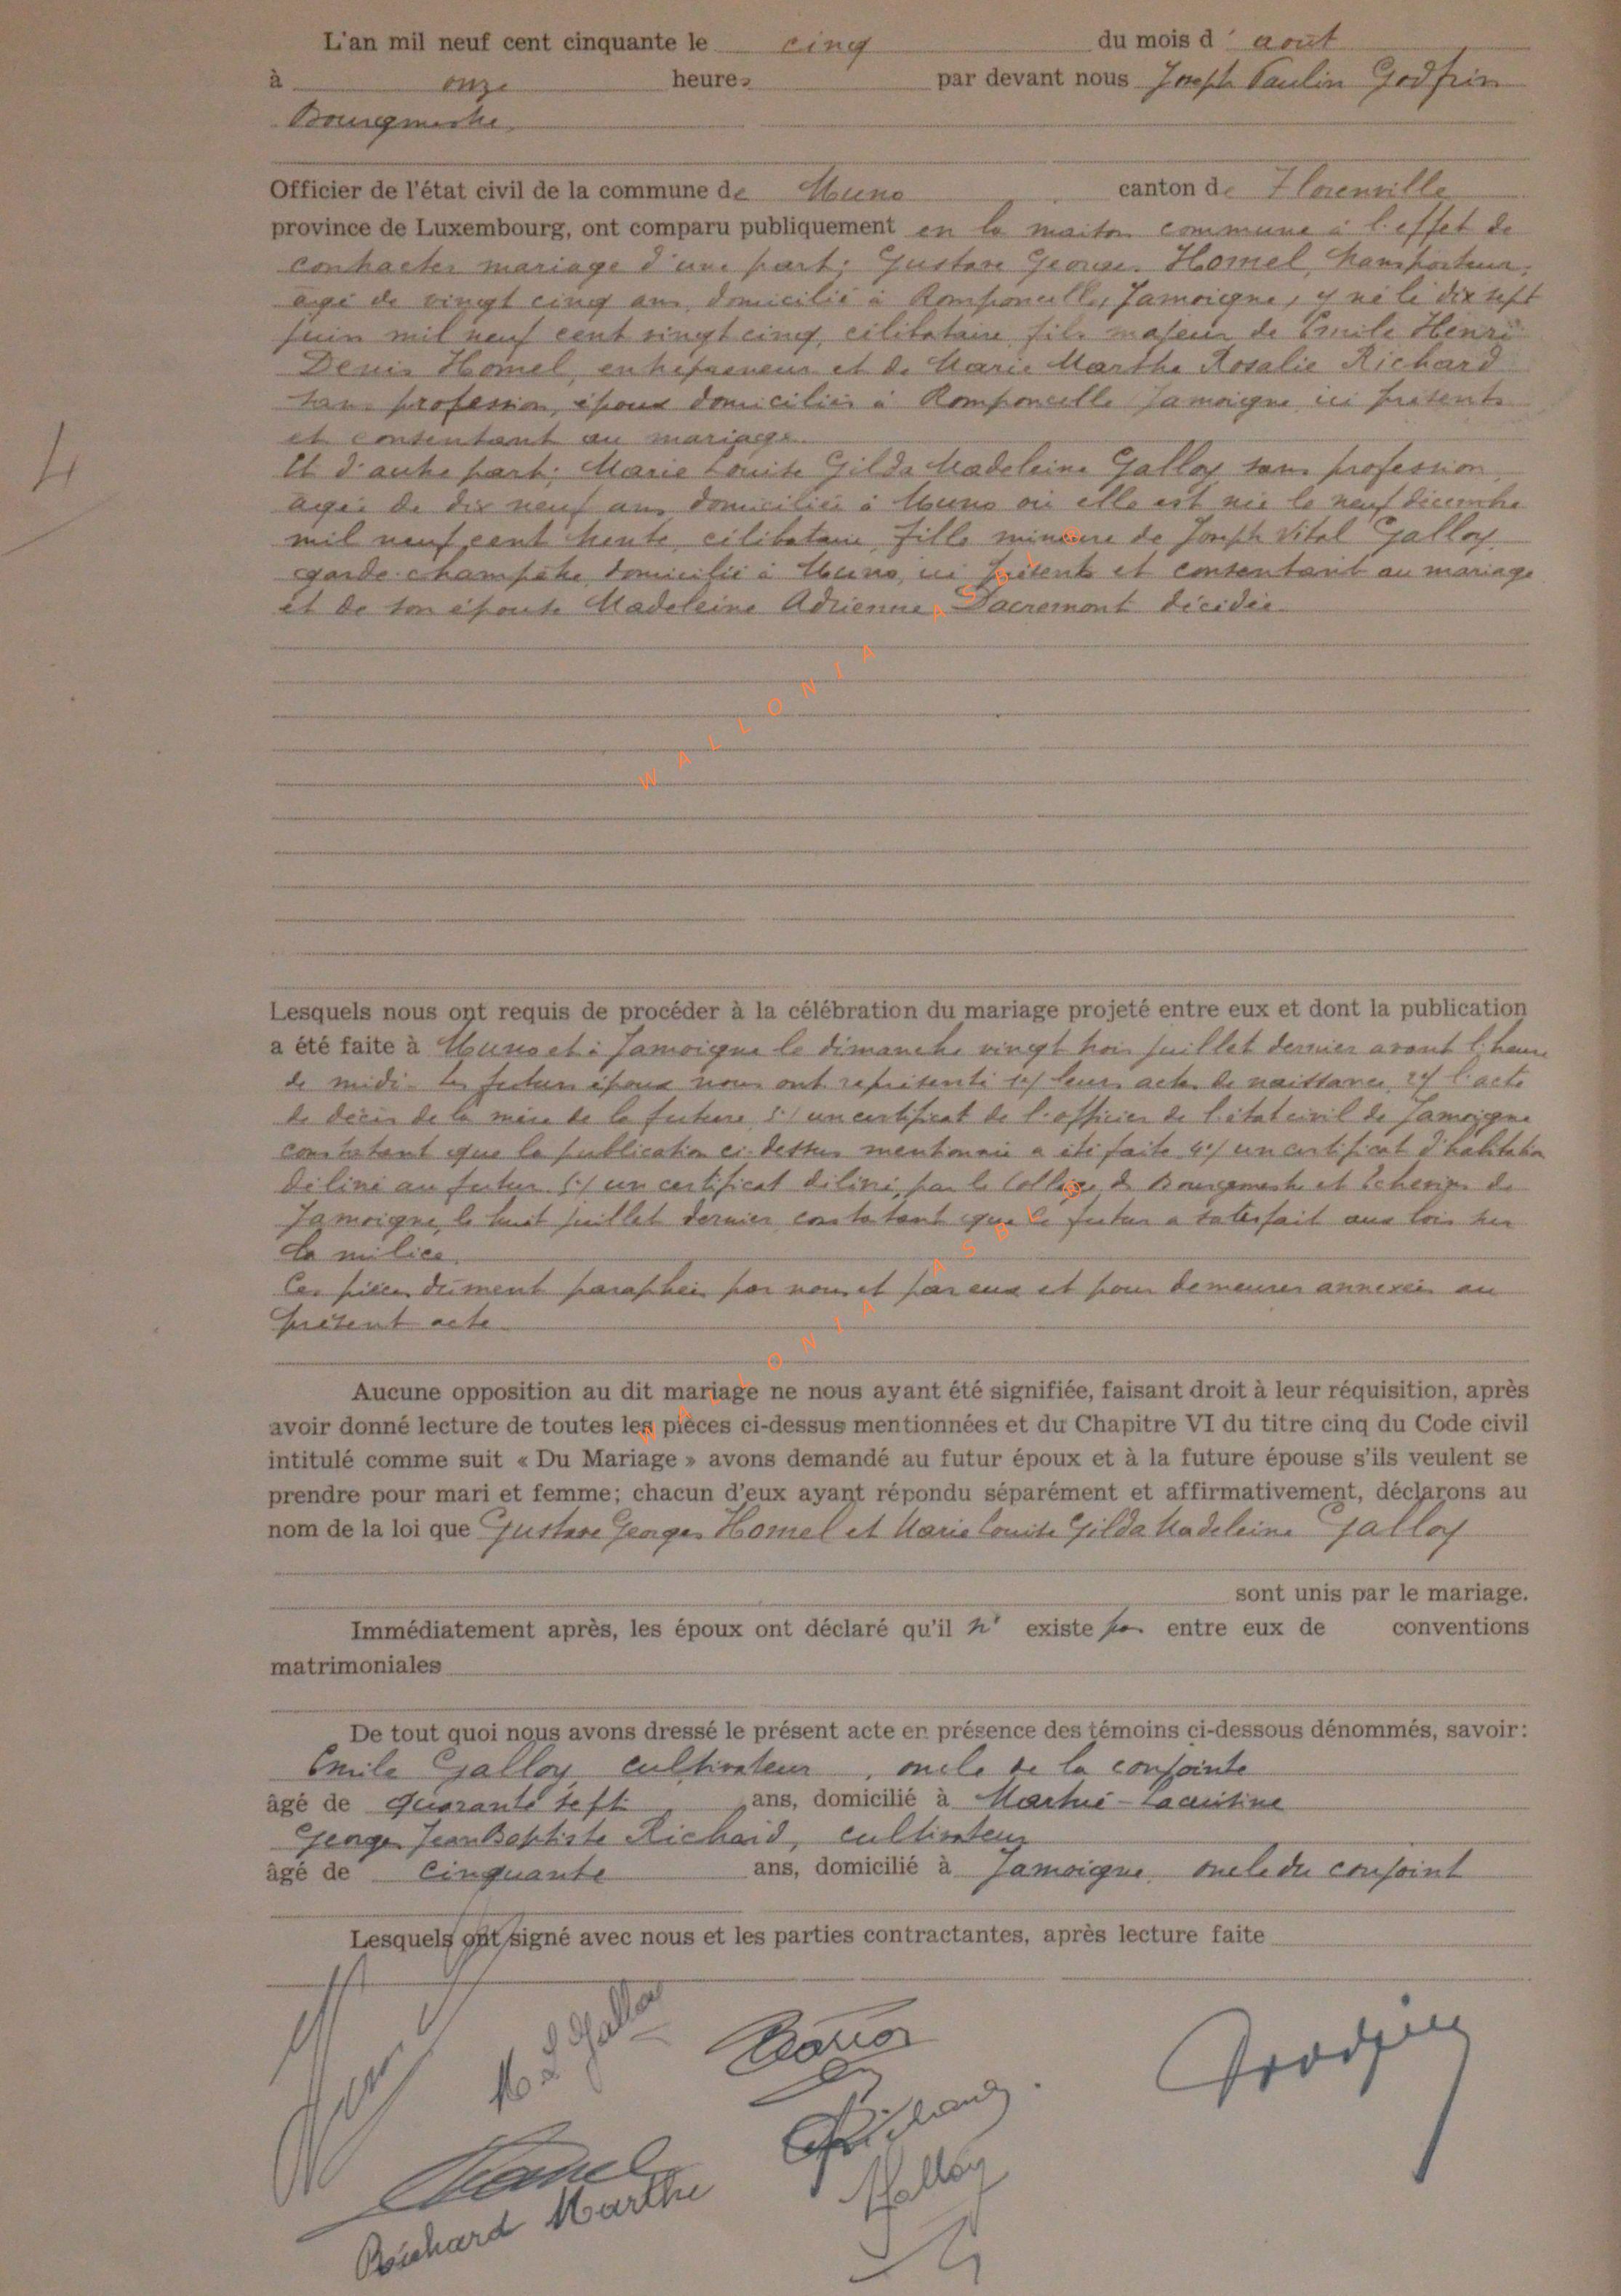 L'an mil neuf cent cinquante le cinq du mois d' août
à onze heures par devant nous Joseph Paulin Godfrin
Bourgmestre
Officier de l'état civil de la commune de Muno canton de Florenville
province de Luxembourg, ont comparu publiquement en la maison commune à l'effet de
contracter mariage d'une part: Gustave Georges Homel, transporteur,
âgé de vingt cinq ans, domicilié à Romponcelle, Jamoigne, y né le dix sept
juin mil neuf cent vingt cinq, célibataire, fils majeur de Emile Henri
Denis Homel, entrepreneur et de Marie Marthe Rosalie Richard
sans profession, époux domiciliés à Romponcelle Jamoigne ici présents
et consentant au mariage.
Et d'autre part: Marie Louise Gilda Madeleine Galloy sans profession,
âgée de dix neuf ans, domiciliée à Muno où elle est née le neuf décembre
mil neuf cent trente, célibataire, fille mineure de Joseph Vital Galloy
garde-champêtre, domicilié à Muno, ici présent et consentant au mariage
et de son épouse Madeleine Adrienne Dacremont décédée
4
WALLONIA ASBL ©
Lesquels nous ont requis de procéder à la célébration du mariage projeté entre eux et dont la publication
a été faite à Muno et à Jamoigne le dimanche vingt trois juillet dernier avant l'heure
de midi. Les futurs époux nous ont représenté 1°/ leurs actes de naissance 2°/ l'acte
de décès de la mère de la future 3°/ un certificat de l'officier de l'état civil de Jamoigne
constatant que la publication ci-dessus mentionnée a été faite 4°/ un certificat d'habitation
délivré au futur 5°/ un certificat délivré par le Collège de Bourgmestre et Echevins de
Jamoigne, le huit juillet dernier, constatant que le futur a satisfait aux lois sur
la milice.
Ces pièces dûment paraphées par nous et par eux et pour demeurer annexées au
présent acte.
WALLONIA ASBL ©
Aucune opposition au dit mariage ne nous ayant été signifiée, faisant droit à leur réquisition, après
avoir donné lecture de toutes les pièces ci-dessus mentionnées et du Chapitre VI du titre cinq du Code civil
intitulé comme suit « Du Mariage » avons demandé au futur époux et à la future épouse s'ils veulent se
prendre pour mari et femme; chacun d'eux ayant répondu séparément et affirmativement, déclarons au
nom de la loi que Gustave Georges Homel et Marie Louise Gilda Madeleine Galloy
sont unis par le mariage.
Immédiatement après, les époux ont déclaré qu'il n' existe pas entre eux de conventions
matrimoniales
De tout quoi nous avons dressé le présent acte en présence des témoins ci-dessous dénommés, savoir:
Emile Galloy, cultivateur, oncle de la conjointe
âgé de quarante sept ans, domicilié à Martué-Lacuisine
Georges Jean Baptiste Richard, cultivateur
âgé de cinquante ans, domicilié à Jamoigne oncle du conjoint
Lesquels ont signé avec nous et les parties contractantes, après lecture faite
M L Galloy
Godfrin
Richard
Galloy
Homel
Richard Marthe